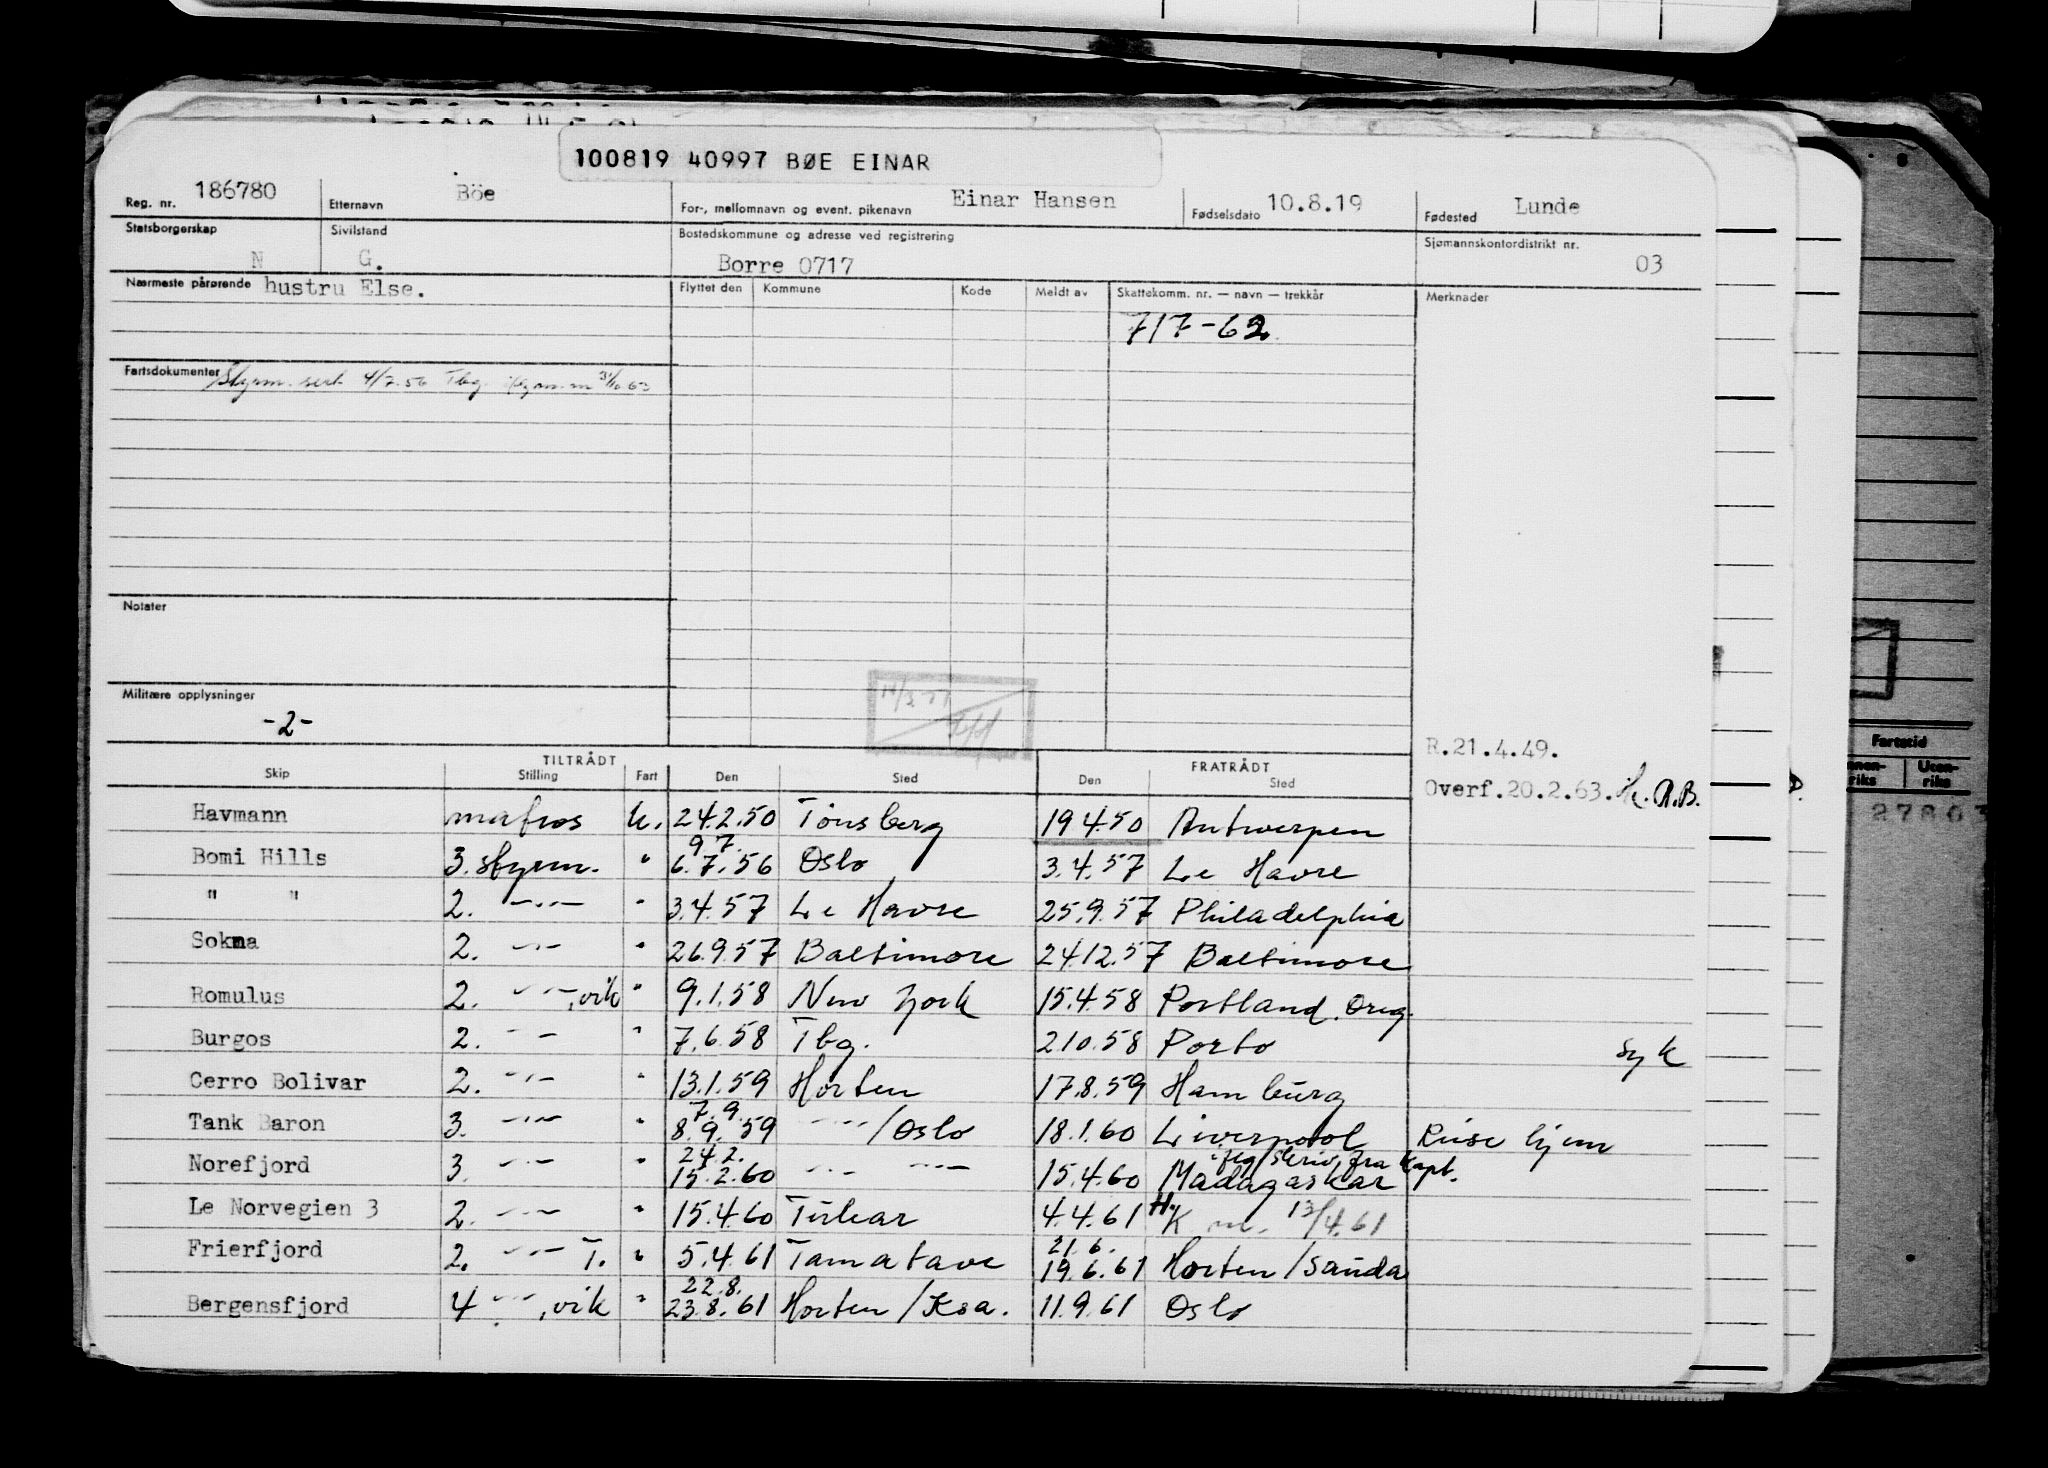 100819 40997 BØE EINAR
Reg. nr. 186780 Etternavn Böe For-, mellomnavn og event. pikenavn Einar Hansen Fødselsdato 10.8.19 Fødested Lunde
Statsborgerskap Sivilstand Bostedskommune og adresse ved registrering Sjømannskontordistrikt nr.
N G. Borre 0717 03
Nærmeste pårørende hustru Else. Flyttet den Kommune Kode Meldt av Skattekomm. nr. — navn — trekkår Merknader
717-62
Fartsdokumenter Styrm. sert 4/7.56 Tbg. 31/10 63
Notater
Militære opplysninger
-2-
R.21.4.49.
TILTRÅDT FRATRÅDT
Skip Stilling Fart Den Sted Den Sted
Overf.20.2.63. A.B.
Havmann matros u. 24.2.50 Tönsberg 19 4.50 Antwerpen
9 7.
Bomi Hills 3. styrm. " 6.7.56 Oslo 3.4.57 Le Havre
" " 2. —"— " 3.4.57 Le Havre 25.9.57 Philadelphia
Sokna 2. —"— " 26.9.57 Baltimore 24.12.57 Baltimore
Romulus 2. —"—, vik " 9.1.58 New York 15.4.58 Portland. Oreg.
Burgos 2. —"— " 7.6.58 Tbg. 2 10.58 Porto syk
Cerro Bolivar 2. —"— " 13.1.59 Horten 17.8.59 Hamburg
7.9.
Tank Baron 3. —"— " 8.9.59 —"— /Oslo 18.1.60 Liverpool Reise hjem
24.2. iflg skriv, fra Kapt.
Norefjord 3. —"— " 15.2.60 —"— —"— 15.4.60 Madagaskar
Le Norvegien 3 2. —"— " 15.4.60 Tulear 4.4.61 H.K 13/4.61
21.6.
Frierfjord 2. —"— T. " 5.4.61 Tamatave 19.6.61 Horten/Sauda
22.8.
Bergensfjord 4 —"—, vik " 23.8.61 Horten/Ksa. 11.9.61 Oslo
Fartstid
Innen-riks Uten-riks